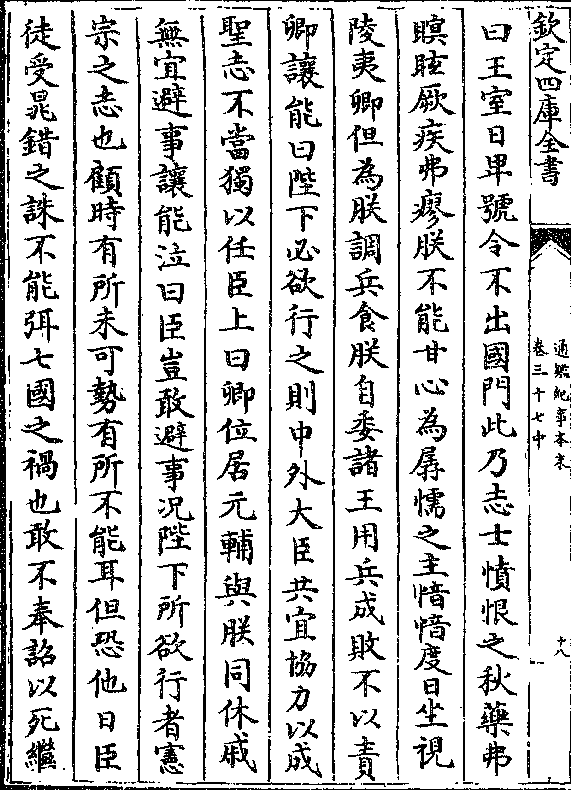 欽定四庫全書
通鑑紀事本末
卷三十七中
十八
曰王室日卑號令不出國門此乃志士憤恨之秋藥弗
瞑眩厥疾弗瘳朕不能甘心為孱懦之主愔愔度日坐視
陵夷卿但為朕調兵食朕自委諸王用兵成敗不以責
卿讓能曰陛下必欲行之則中外大臣共宜協力以成
聖志不當獨以任臣上曰卿位居元輔與朕同休戚
無宜避事讓能泣曰臣豈敢避事况陛下所欲行者憲
宗之志也顧時有所未可勢有所不能耳但恐他日臣
徒受鼂錯之誅不能弭七國之禍也敢不奉詔以死繼